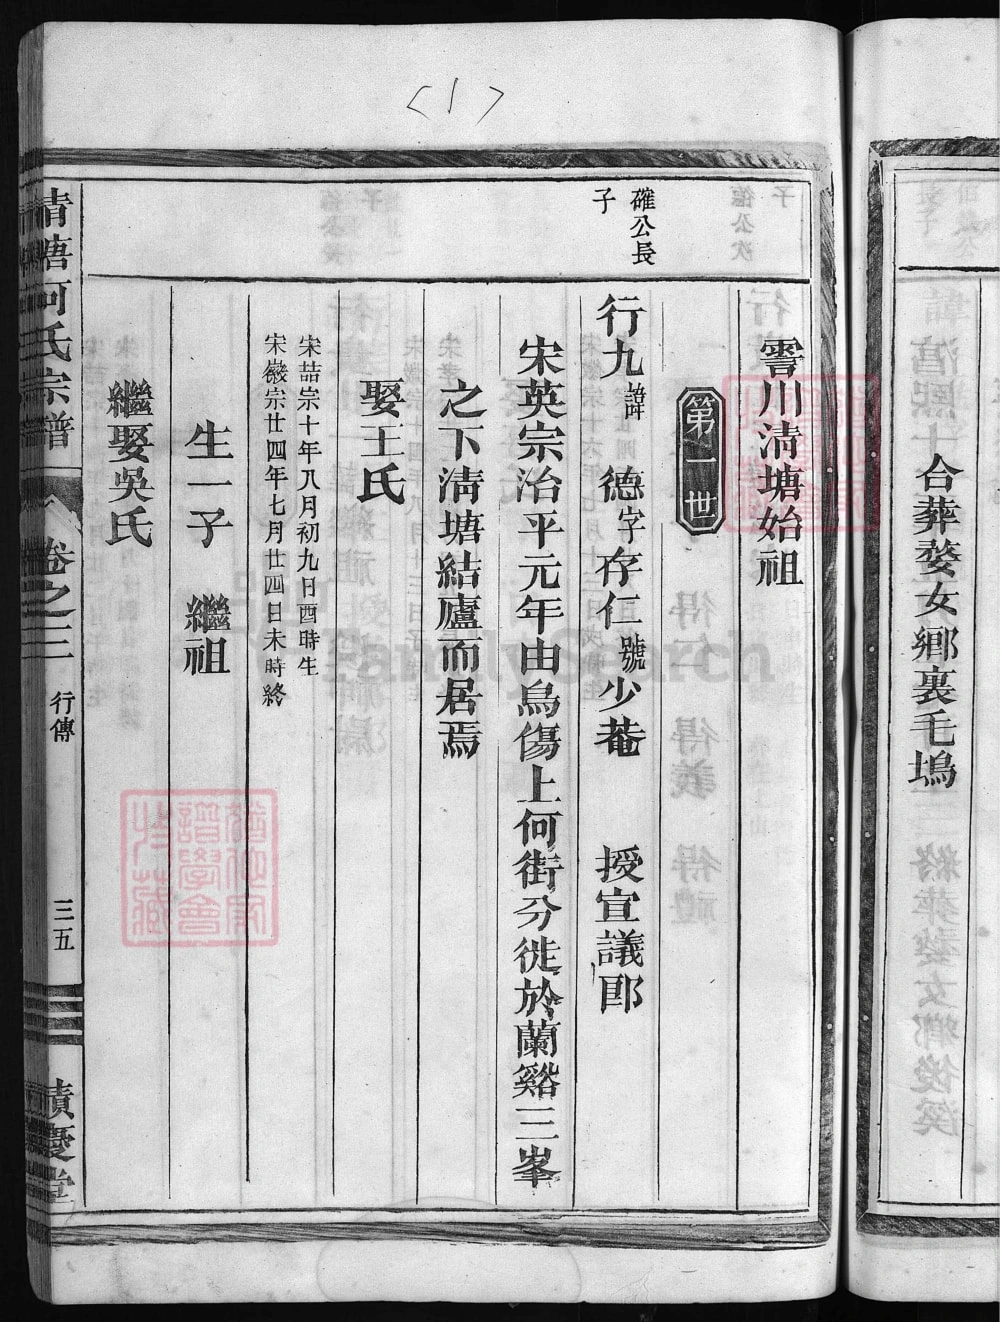 合葬婺女鄉裏毛塢
<1>
霅川清塘始祖
第一世
確公長
子
行九諱 德字存仁號少菴 授宣議郎
宋英宗治平元年由烏傷上何街分徙於蘭谿三峯
之下清塘結廬而居焉
娶王氏
宋喆宗十年八月初九日酉時生
宋徽宗廿四年七月廿四日未時終
生一子 繼祖
繼娶吳氏
清塘何氏宗譜 卷之三 行傳 三五 積慶堂
FamilySearch